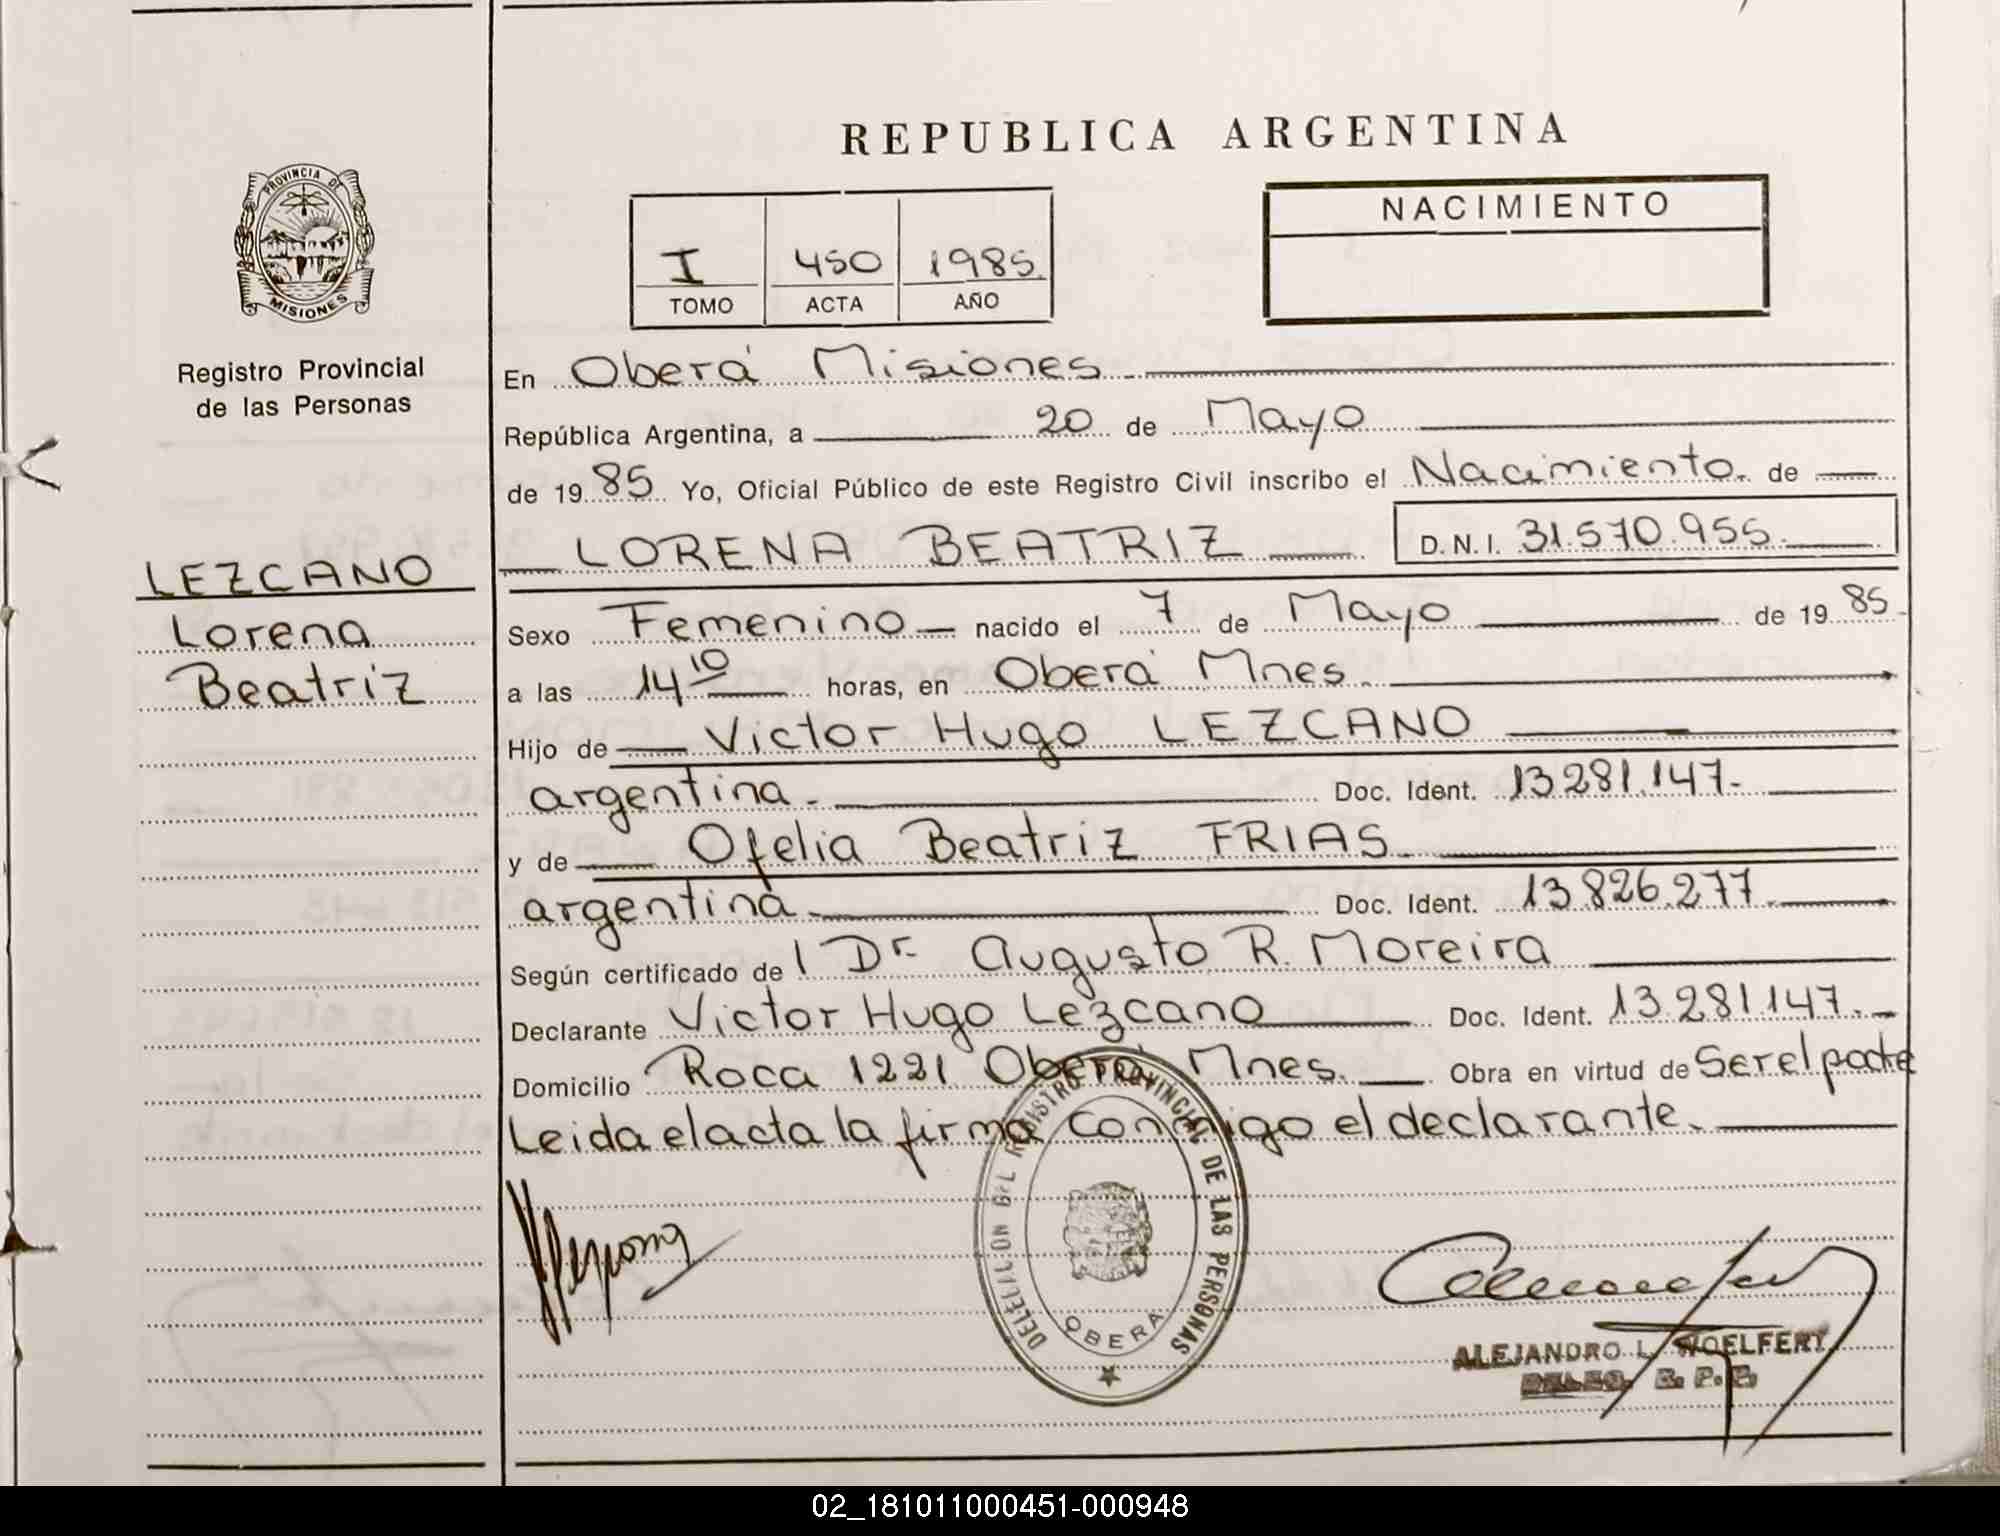 REPUBLICA ARGENTINA
PROVINCIA DE
MISIONES
Registro Provincial
de las Personas
I 450 1985
TOMO ACTA AÑO
NACIMIENTO
LEZCANO
Lorena
Beatriz
En Oberá Misiones
República Argentina, a 20 de Mayo
de 1985 Yo, Oficial Público de este Registro Civil inscribo el Nacimiento de
LORENA BEATRIZ D.N.I. 31.570.955
Sexo Femenino nacido el 7 de Mayo de 1985
a las 14 10 horas, en Oberá Mnes.
Hijo de Victor Hugo LEZCANO
argentina. Doc. Ident. 13.281.147.
y de Ofelia Beatriz FRIAS
argentina Doc. Ident. 13.826.277.
Según certificado de l Dr. Augusto R. Moreira
Declarante Victor Hugo Lezcano Doc. Ident. 13.281.147.
Domicilio Roca 1221 Oberá Mnes. Obra en virtud de Ser el padre
Leida el acta la firma conmigo el declarante.
REGISTRO PROVINCIAL DE LAS PERSONAS
OBERA
ALEJANDRO L. WOELFERT
DELEG. R. P. P.
02_181011000451-000948